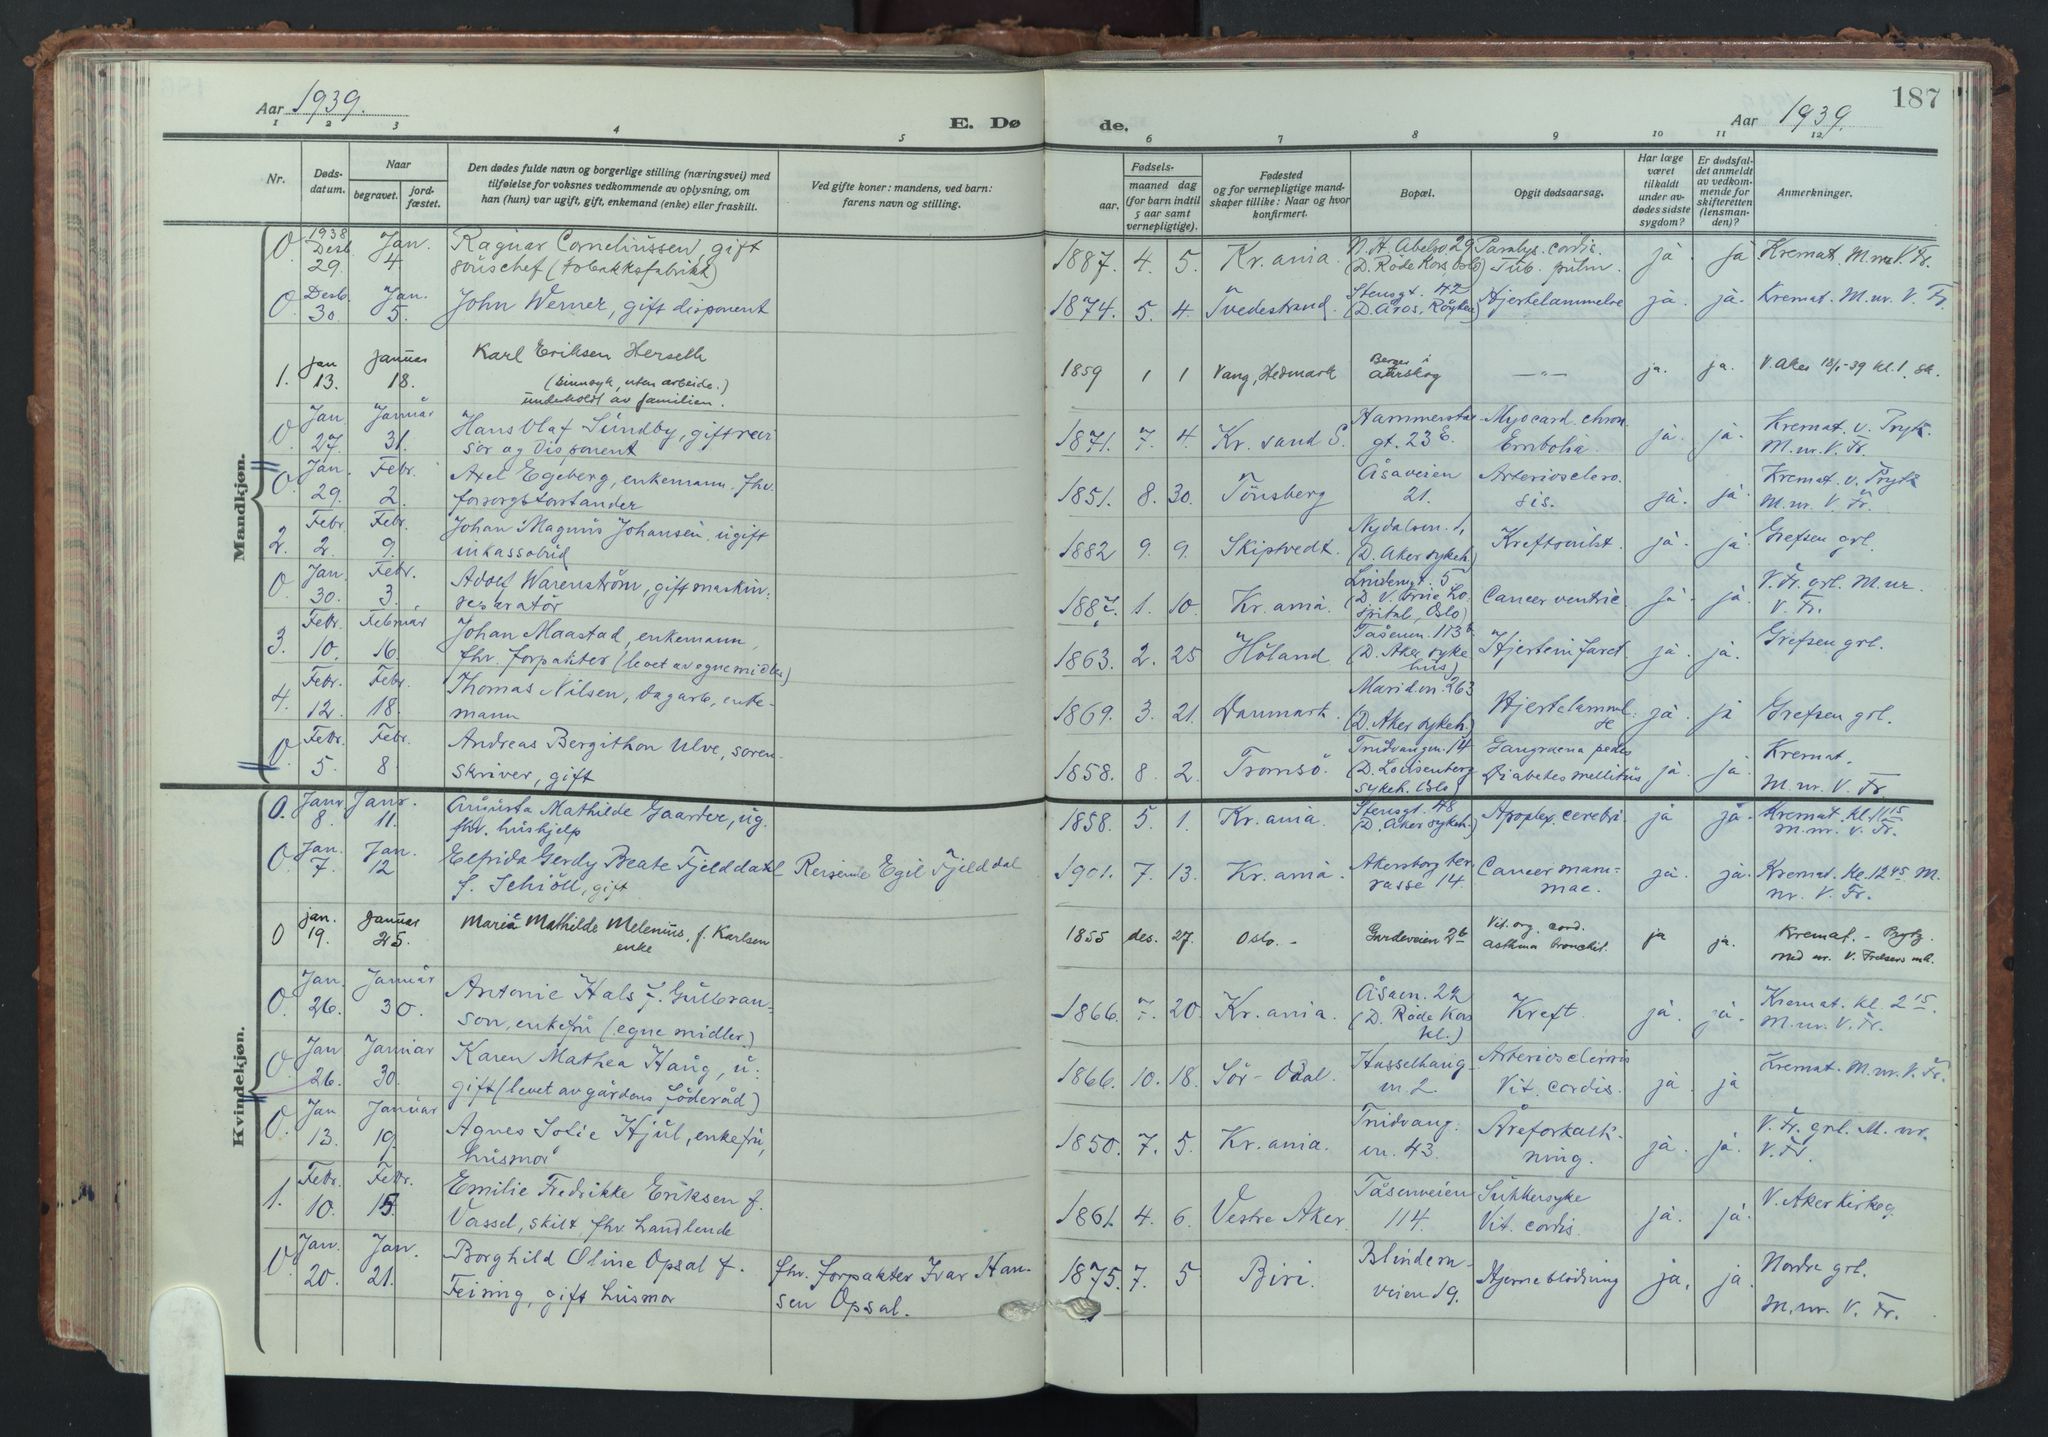 187
Aar 1939.
E. Døde.
Aar 1939.
1 2 3 4 5 6 7 8 9 10 11 12
Nr.
Døds-
datum.
Naar
begravet.
jord-
fæstet.
Den dødes fulde navn og borgerlige stilling (næringsvei) med
tilføielse for voksnes vedkommende av oplysning, om
han (hun) var ugift, gift, enkemand (enke) eller fraskilt.
Ved gifte koner: mandens, ved barn:
farens navn og stilling.
Fødsels-
aar.
maaned dag
(for barn indtil
5 aar samt
vernepligtige).
Fødested
og for vernepligtige mand-
skaper tillike: Naar og hvor
konfirmert.
Bopæl.
Opgit dødsaarsag.
Har læge
været
tilkaldt
under av-
dødes sidste
sygdom?
Er dødsfal-
det anmeldt
av vedkom-
mende for
skifteretten
(lensman-
den)?
Anmerkninger.
Mandkjøn.
0. 1938 Desb. 29. Jan. 4. Ragnar Corneliussen, gift
souschef (tobakksfabrikk)
1887. 4. 5. Kr.ania. N. H. Abelsv. 29 Paralys. cordis.
(D. Røde Kors Oslo) Tub. pulm. ja ja Kremat. M.nr. V. Fr.
0. Desb. 30. Jan. 5. John Werner, gift disponent
1874. 5. 4. Tvedestrand. Stensgt. 42
(D. Åros, Røyken) Hjertelammelse ja. ja. Kremat. M. nr. V. Fr.
1. jan 13. januar 18. Karl Eriksen Herseth
(sinnsyk, uten arbeide.)
underholdt av familien.
1859 1 1 Vang, Hedmark Berger i
Aurskog —"— ja. ja. V. Aker 18/1-39 kl. 1. sk.
0. Jan 27. Januar 31. Hans Olaf Sundby, gift revi
sor og disponent
1871. 7. 4. Kr.sand S. Hammersta
gt. 23 E. Myocard. chron.
Embolia ja. ja. Kremat. v. Prytz.
M. nr. V. Fr.
0. Jan. 29. Febr. 2. Axel Egeberg, enkemann. fhv.
forsorgsforstander
1851. 8. 30. Tönsberg Åsaveien
21. Arterioschlero
sis. ja. ja. Kremat. v. Prytz
M. nr. V. Fr.
2. Febr 2. Febr. 9. Johan Magnus Johansen, ugift
inkassobud
1882 9. 9. Skiptvedt. Nydalsvn. 1,
(D. Aker sykeh.) Kreftsvulst. ja. ja. Grefsen grl.
0. Jan. 30. Febr. 3. Adolf Warenström, gift maskin-
reparatör
1887. 1. 10. Kr.ania. Lindemgt. 5
spital, Oslo) Cancer ventric. ja. ja. V. Fr. grl. M. nr.
V. Fr.
3. Febr. 10. Februar 16. Johan Maastad, enkemann,
fhv. forpakter (levet av egne midler)
1863. 2. 25 Höland. Tåsenvn. 113 b
(D. Aker syke
hus) Hjerteinfarct ja. ja. Grefsen grl.
4. Febr. 12. Febr. 18. Thomas Nilsen, dagarb, enke-
mann
1869. 3. 21. Danmark. Maridvn. 263
(D. Aker sykeh.) Hjertelammel-
se ja. ja Grefsen grl.
0. Febr. 5. Febr. 8 Andreas Bergithon Ulve, soren-
skriver, gift
1858. 8. 2. Tromsö. Trudvangvn. 14
(D. Lovisenberg
sykeh. Oslo) Gangraena pedis
Diabetes mellitus ja. ja. Kremat.
M. nr. V. Fr.
Kvindekjøn.
0. Janr 8. Janr. 11. Augusta Mathilde Gaarder, ug.
fhv. hushjelp
1858. 5. 1. Kr.ania. Stensgt. 48
(D. Aker sykeh.) Apoplex. cerebri. ja ja. Kremat. kl. 11 15
M. nr. V. Fr.
0. Jan. 7. Jan. 12 Elfrida Gerdy Beate Fjelddahl
f. Schiöll, gift Reisende Egil Fjelddal
1901. 7. 13. Kr.ania. Akersborg ter-
rasse 14. Cancer mam-
mae. ja. ja. Kremat. kl. 12 45 M.
nr. V. Fr.
0 jan. 19. Januar 25. Marie Mathilde Melenius, f. Karlsen
enke
1855 des. 27. Oslo. - Gardeveien 2b Vit. org. cord.
asthma bronchil. ja ja. Kremat. - Prytz.
med nr. V. Frelsers mk.
0. Jan 26. Januar 30. Antonie Hals f. Gulbran-
son, enkefru (egne midler.)
1866. 7. 20. Kr.ania. Åsavn. 22
(D. Røde Kors
kl.) Kreft. ja. ja. Kremat. kl. 2 15.
M. nr. V. Fr.
0. Jan 26. Januar 30. Karen Mathea Haug, u-
gift (levet av gårdens föderåd)
1866. 10. 18. Sör-Odal. Hasselhaug-
vn. 2 Arteriosclerosis
Vit. cordis. ja. ja Kremat. M. nr. V. Fr.
0. Jan 13. Januar 19. Agnes Sofie Hjul, enkefru,
husmor
1850. 7. 5. Kr.ania. Trudvang-
vn. 43. Åreforkalk-
ning. ja. ja. V. Fr. grl. M. nr.
V. Fr.
1. Febr. 10. Febr. 15. Emilie Fredrikke Eriksen f.
Vassel, skilt fhv. handlende
1861. 4. 6. Vestre Aker. Tåsenveien
114. Sukkersyke
Vit. cordis. ja. ja. V. Aker kirkeg.
0. Jan. 20. Jan. 21. Borghild Oline Opsal f.
Feiring, gift husmor fhv. forpakter Ivar Han-
sen Opsal.
1875. 7. 5 Biri. Blindern-
veien 19. Hjerneblödning ja. ja. Nordre grl.
M. nr. V. Fr.